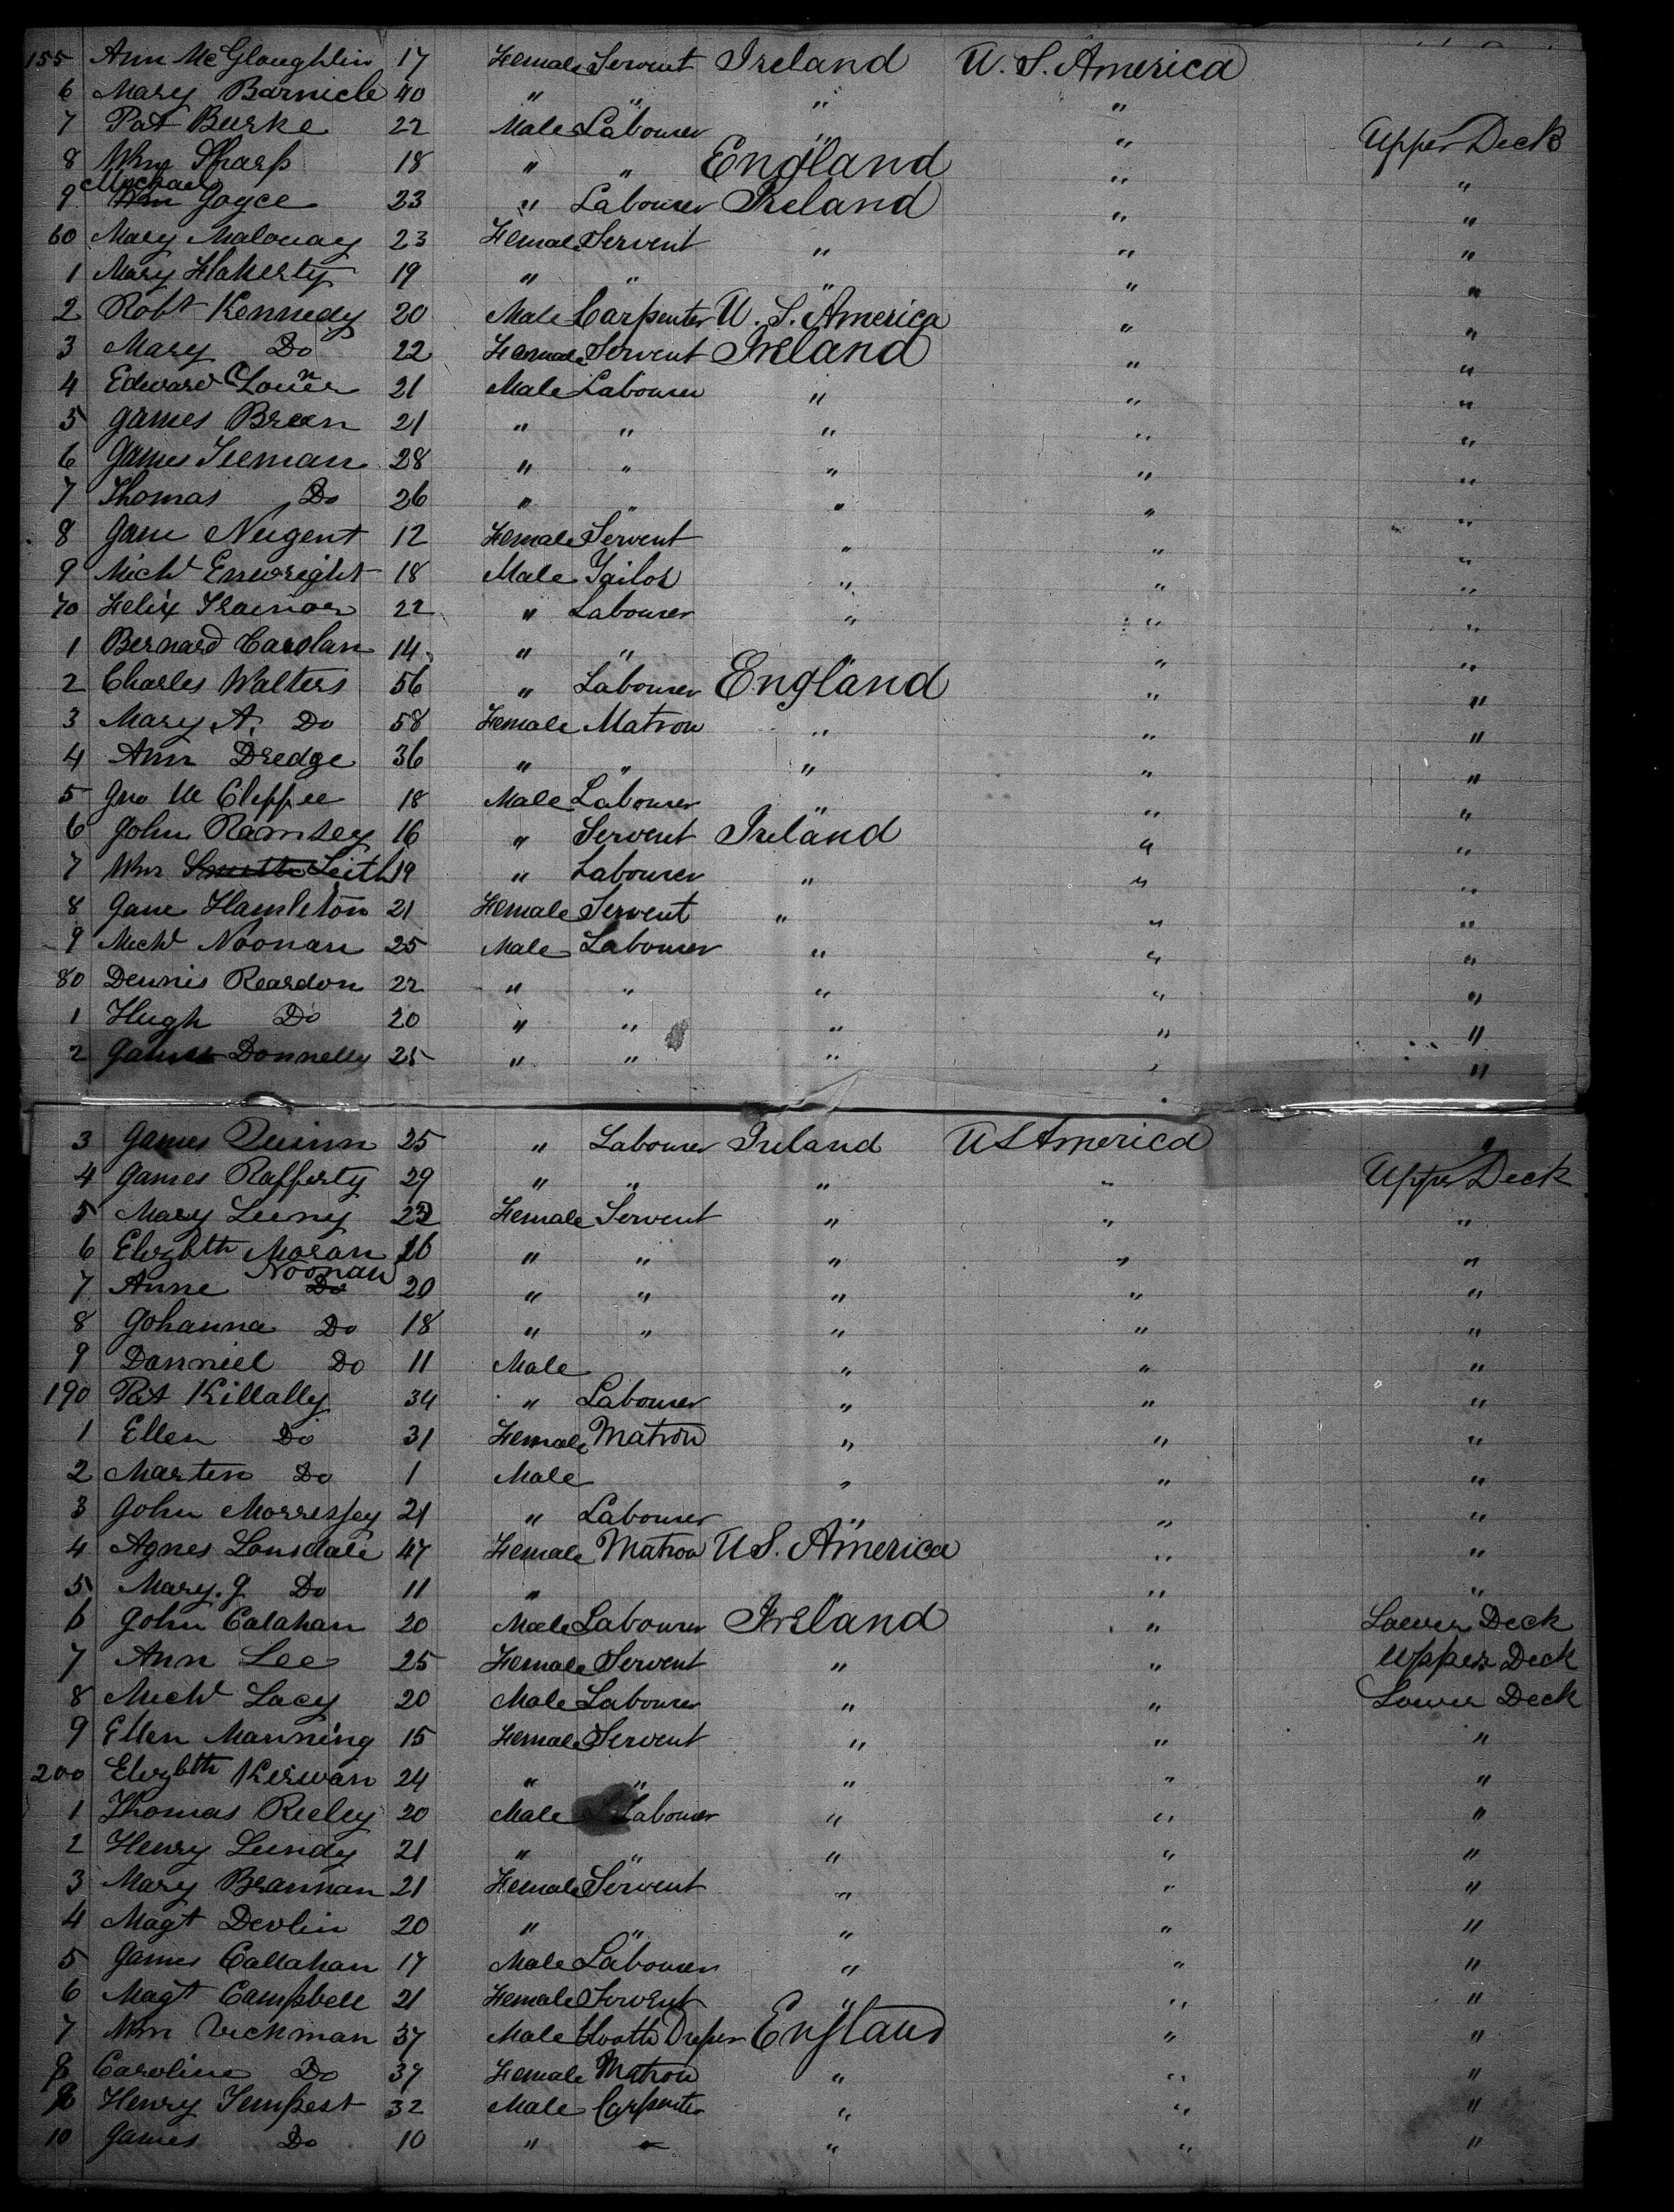 155 Ann McGloughlin 17 Female Servent Ireland U.S. America
6 Mary Barnicle 40 " " " "
7 Pat Burke 22 Male Labourer " " Upper Deck
8 Wm Sharp 18 " " England " "
Michael
9 Wm Joyce 23 " Labourer Ireland " "
60 Mary Malouay 23 Female Servent " " "
1 Mary Flaherty 19 " " " " "
2 Robt Kennedy 20 Male Carpenter U.S. America " "
3 Mary Do 22 Female Servent Ireland " "
4 Edward 21 Male Labourer " " "
5 James Breen 21 " " " " "
6 James Teeman 28 " " " " "
7 Thomas Do 26 " " " " "
8 Jane Nugent 12 Female Servent " " "
9 Michl Enwright 18 Male Tailor " " "
70 Felix Trainor 22 " Labourer " " "
1 Bernard Carolan 14 " " " " "
2 Charles Walters 56 " Labourer England " "
3 Mary A. Do 58 Female Matron " " "
4 Ann Dredge 36 " " " " "
5 Jno Mc 18 Male Labourer " " "
6 John Ramsey 16 " Servent Ireland " "
7 Wm Smith Leith 19 " Labourer " " "
8 Jane Hamleton 21 Female Servent " " "
9 Michl Noonan 25 Male Labourer " " "
80 Dennis Reardon 22 " " " " "
1 Hugh Do 20 " " " " "
2 James Donnelly 25 " " " " "
3 James Quinn 25 " Labourer Ireland US America "
4 James Rafferty 29 " " " " Upper Deck
5 Mary Leeny 22 Female Servent " " "
6 Elizbth Moran 16 " " " " "
Noonan
7 Anne Do 20 " " " " "
8 Johanna Do 18 " " " " "
9 Danniel Do 11 Male " " "
190 Pat Killally 34 " Labourer " " "
1 Ellen Do 31 Female Matron " " "
2 Marten Do 1 Male " " "
3 John Morressey 21 " Labourer " " "
4 Agnes Lonsdale 47 Female Matron US. America " "
5 Mary. J Do 11 " " "
6 John Calahan 20 Male Labourer Ireland " Lower Deck
7 Ann Lee 25 Female Servent " " Upper Deck
8 Michl Lacy 20 Male Labourer " " Lower Deck
9 Ellen Manning 15 Female Servent " " "
200 Elizbth Kerwan 24 " " " " "
1 Thomas Reeley 20 Male Labourer " " "
2 Henry Lundy 21 " " " " "
3 Mary Brannan 21 Female Servent " " "
4 Magt Devlin 20 " " " " "
5 James Callahan 17 Male Labourer " " "
6 Magt Campbell 21 Female Servent " " "
7 Wm Vickman 37 Male Cloath Dresser England " "
8 Caroline Do 37 Female Matron " " "
9 Henry Tempest 32 Male Carpenter " " "
10 James Do 10 " " " "